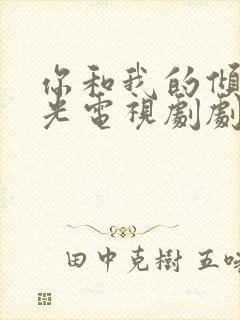 你和我的傾
光電視劇劇
田中克樹 五